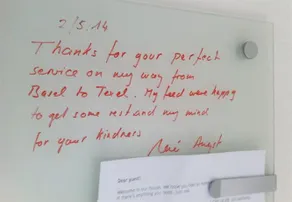 2/5.14
Thanks for your perfect
service on my way from
Basel to Texel. My feed were happy
to get some rest and my mind
for your kindness
Dear guest!